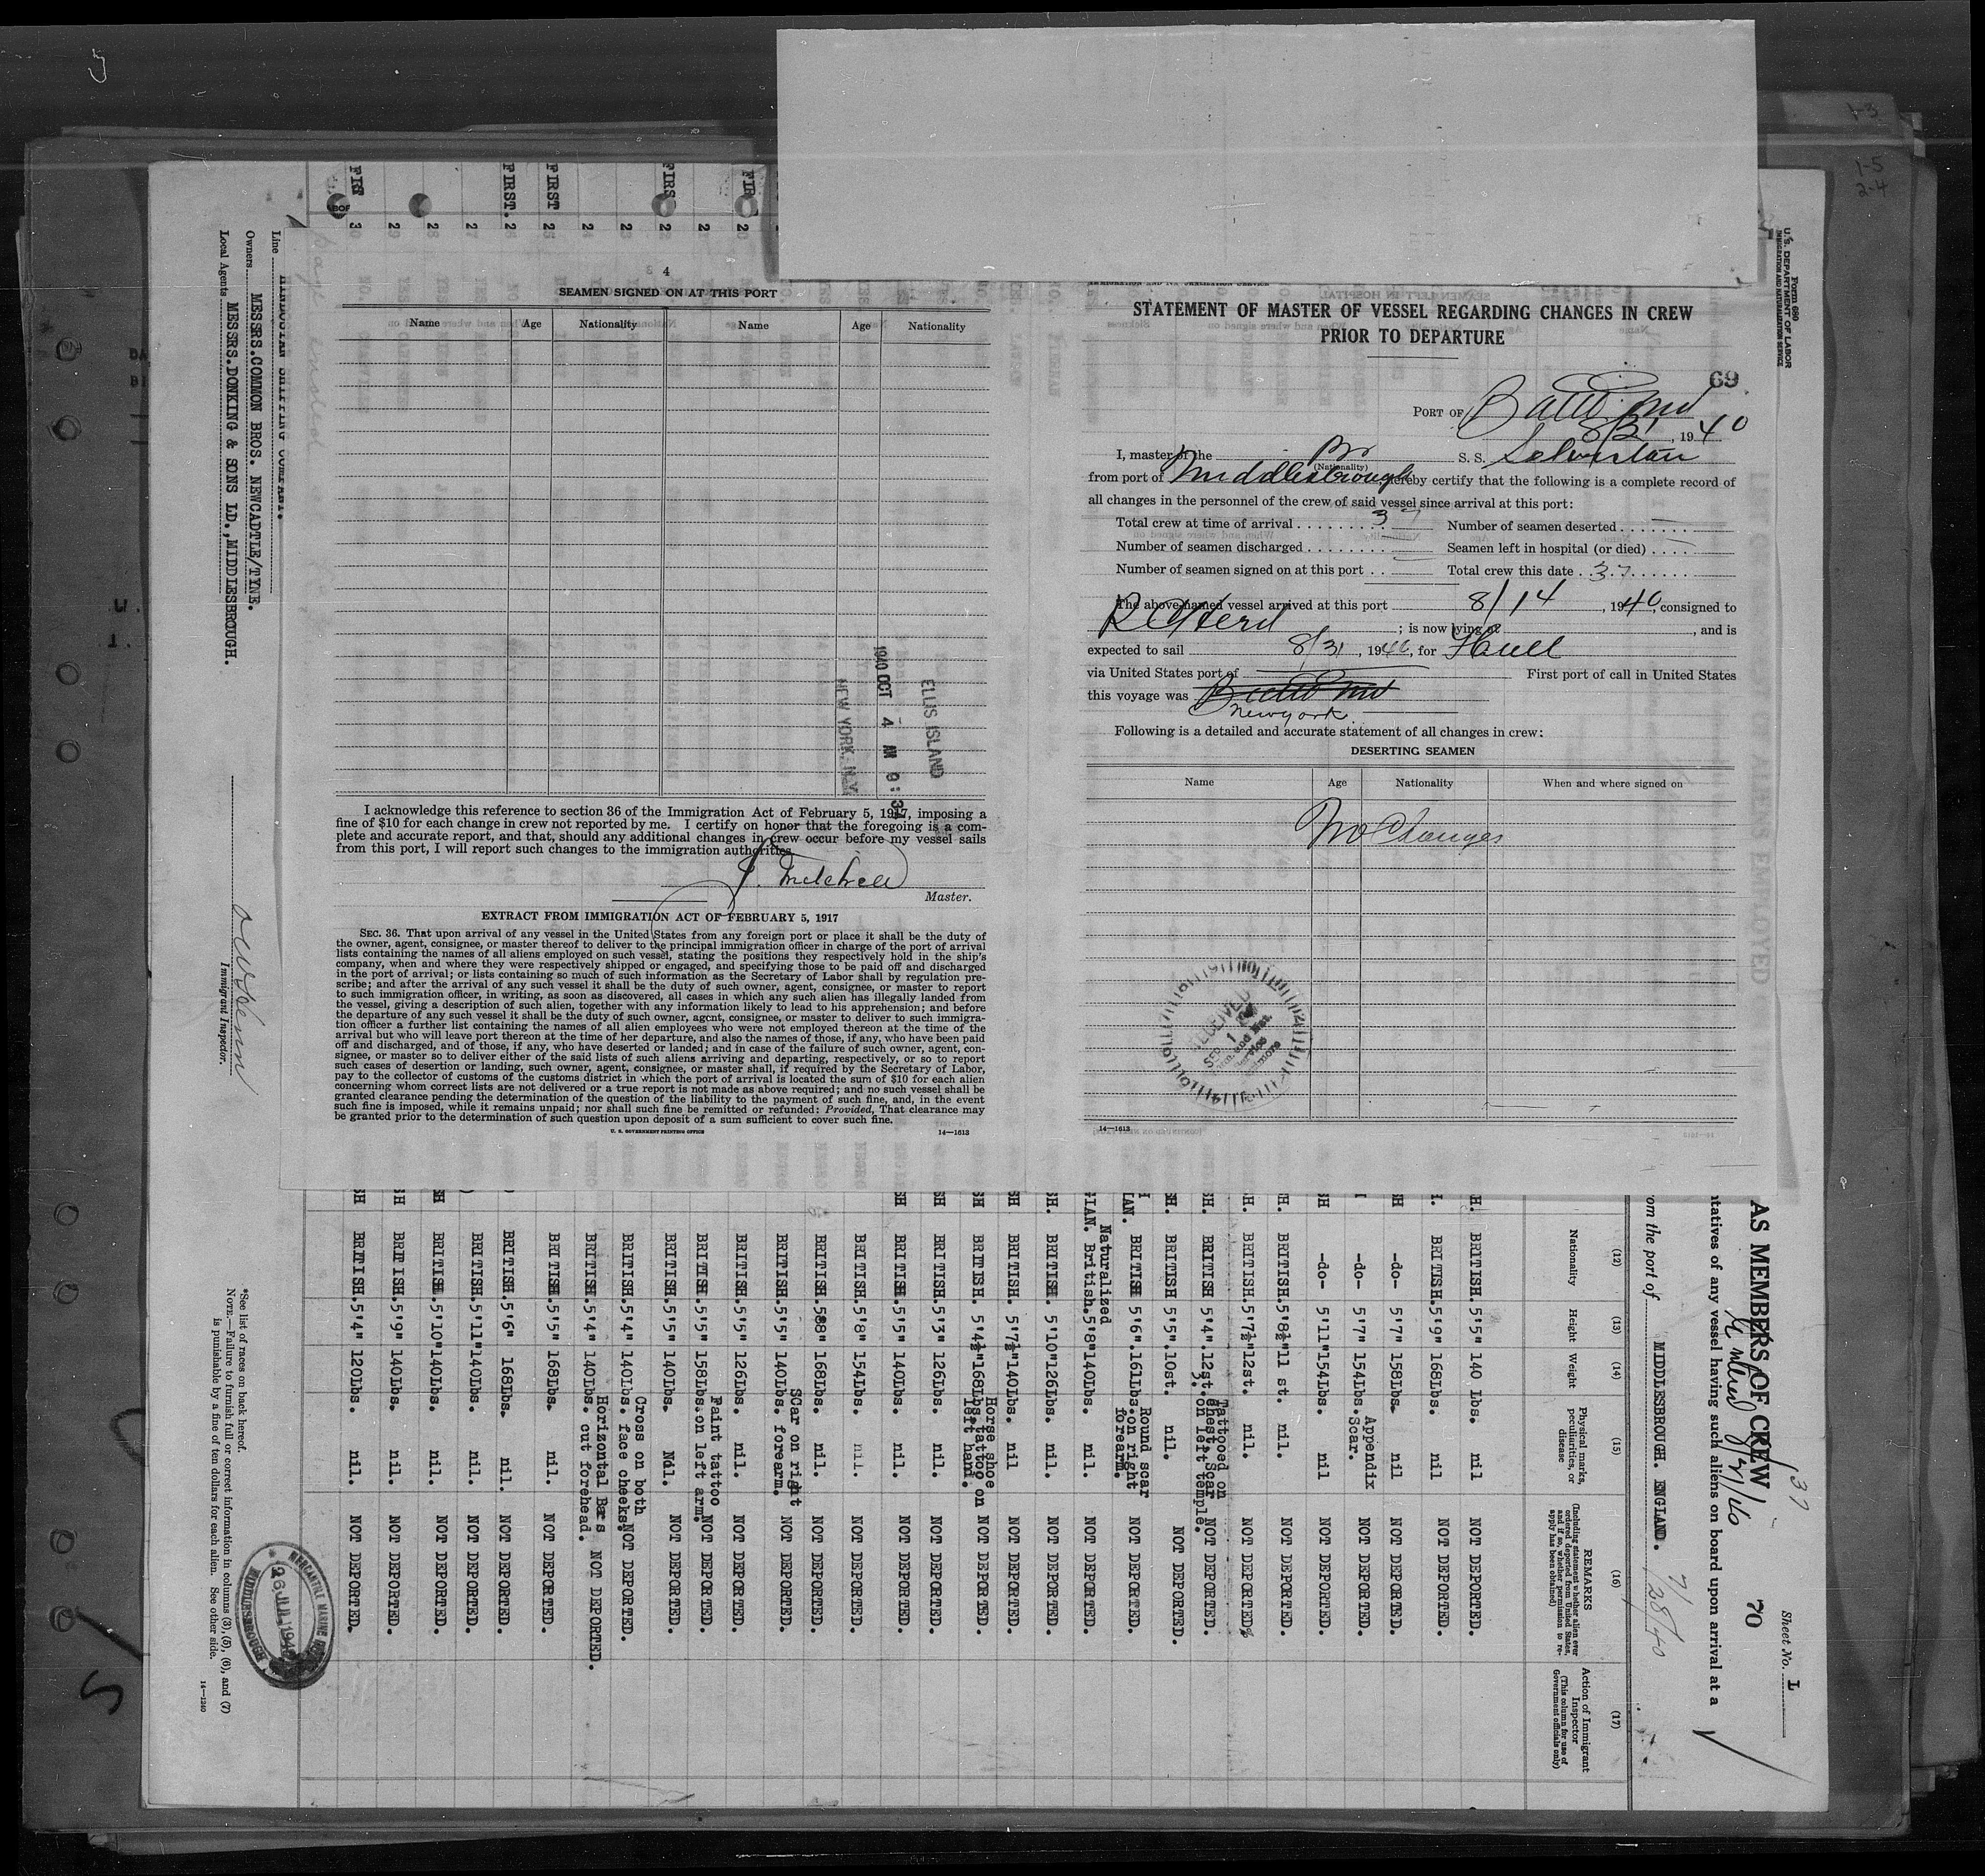 5
1-3
1-5
2-4
Form 680
U. S. DEPARTMENT OF LABOR
IMMIGRATION AND NATURALIZATION SERVICE
STATEMENT OF MASTER OF VESSEL REGARDING CHANGES IN CREW
PRIOR TO DEPARTURE
69
PORT OF Balto Md
8/31, 1940
I, master of the Br S. S. Salvestan
(Nationality)
from port of Middlesbrough hereby certify that the following is a complete record of
all changes in the personnel of the crew of said vessel since arrival at this port:
Total crew at time of arrival 37 Number of seamen deserted —
Number of seamen discharged Seamen left in hospital (or died) —
Number of seamen signed on at this port — Total crew this date 37
The above-named vessel arrived at this port 8/14, 1940, consigned to
; is now lying at , and is
expected to sail 8/31, 1940, for Hull
via United States port of First port of call in United States
this voyage was Balto Md
New York
Following is a detailed and accurate statement of all changes in crew:
DESERTING SEAMEN
Name Age Nationality When and where signed on
No Changes
RECEIVED
SEP 1
14—1613
4
SEAMEN SIGNED ON AT THIS PORT
Name Age Nationality Name Age Nationality
ELLIS ISLAND
1940 OCT 4 AM 9:34
NEW YORK, N.Y.
I acknowledge this reference to section 36 of the Immigration Act of February 5, 1917, imposing a
fine of $10 for each change in crew not reported by me. I certify on honor that the foregoing is a com-
plete and accurate report, and that, should any additional changes in crew occur before my vessel sails
from this port, I will report such changes to the immigration authorities.
J. Mitchell
Master.
EXTRACT FROM IMMIGRATION ACT OF FEBRUARY 5, 1917
SEC. 36. That upon arrival of any vessel in the United States from any foreign port or place it shall be the duty of
the owner, agent, consignee, or master thereof to deliver to the principal immigration officer in charge of the port of arrival
lists containing the names of all aliens employed on such vessel, stating the positions they respectively hold in the ship's
company, when and where they were respectively shipped or engaged, and specifying those to be paid off and discharged
in the port of arrival; or lists containing so much of such information as the Secretary of Labor shall by regulation pre-
scribe; and after the arrival of any such vessel it shall be the duty of such owner, agent, consignee, or master to report
to such immigration officer, in writing, as soon as discovered, all cases in which any such alien has illegally landed from
the vessel, giving a description of such alien, together with any information likely to lead to his apprehension; and before
the departure of any such vessel it shall be the duty of such owner, agent, consignee, or master to deliver to such immigra-
tion officer a further list containing the names of all alien employees who were not employed thereon at the time of the
arrival but who will leave port thereon at the time of her departure, and also the names of those, if any, who have been paid
off and discharged, and of those, if any, who have deserted or landed; and in case of the failure of such owner, agent, con-
signee, or master so to deliver either of the said lists of such aliens arriving and departing, respectively, or so to report
such cases of desertion or landing, such owner, agent, consignee, or master shall, if required by the Secretary of Labor,
pay to the collector of customs of the customs district in which the port of arrival is located the sum of $10 for each alien
concerning whom correct lists are not delivered or a true report is not made as above required; and no such vessel shall be
granted clearance pending the determination of the question of the liability to the payment of such fine, and, in the event
such fine is imposed, while it remains unpaid; nor shall such fine be remitted or refunded: Provided, That clearance may
be granted prior to the determination of such question upon deposit of a sum sufficient to cover such fine.
U. S. GOVERNMENT PRINTING OFFICE
14—1613
Sheet No. L
AS MEMBERS OF CREW 70
37
ntatives of any vessel having such aliens on board upon arrival at a
om the port of MIDDLESBROUGH. ENGLAND. 7/28/40
(12) (13) (14) (15) (16) (17)
Nationality Height Weight Physical marks, peculiarities, or disease
REMARKS (Including statement whether alien ever ordered deported from United States, and if so, whether permission to re-apply has been obtained)
Action of Immigrant Inspector (This column for use of Government officials only)
H. BRITISH. 5'5" 140 Lbs. nil NOT DEPORTED.
I. BRITISH. 5'9" 168Lbs. nil NOT DEPORTED.
SH -do- 5'7" 158Lbs. nil NOT DEPORTED.
-do- 5'7" 154Lbs. Appendix Scar. NOT DEPORTED.
SH -do- 5'11" 154Lbs. nil NOT DEPORTED.
H. BRITISH. 5'8½" 11 st. nil. NOT DEPORTED.
H. BRITISH. 5'7½" 12st. nil. NOT DEPORTED%
SH. BRITISH 5'4" 12st. Tattooed on chest. Scar on left temple. NOT DEPORTED.
SH. BRITISH 5'5" 10st. nil. NOT DEPORTED.
IAN. BRITISH 5'6" 161Lbs. Round scar on right forearm. NOT DEPORTED.
VIAN. Naturalized British. 5'8" 140Lbs. nil. NOT DEPORTED.
SH. BRITISH. 5'10" 126Lbs. nil. NOT DEPORTED.
SH BRITISH. 5'7½" 140Lbs. nil NOT DEPORTED.
SH BRITISH. 5'4½" 168Lbs. Horse shoe tattoo on left hand. NOT DEPORTED.
SH BRITISH. 5'3" 126Lbs. nil. NOT DEPORTED.
SH BRITISH. 5'5" 140Lbs. nil. NOT DEPORTED.
BRITISH. 5'8" 154Lbs. nil. NOT DEPORTED.
BRITISH. 5'8" 168Lbs. nil. NOT DEPORTED.
BRITISH. 5'5" 140Lbs. Scar on right forearm. NOT DEPORTED.
BRITISH. 5'5" 126Lbs. nil. NOT DEPORTED.
BRITISH. 5'5" 158Lbs. Faint tattoo on left arm. NOT DEPORTED.
BRITISH. 5'5" 140Lbs. Nil. NOT DEPORTED.
BRITISH. 5'4" 140Lbs. Cross on both face cheeks. NOT DEPORTED.
BRITISH. 5'4" 140Lbs. Horizontal Bars cut forehead. NOT DEPORTED.
BRITISH. 5'5" 168Lbs. nil. NOT DEPORTED.
BRITISH. 5'6" 168Lbs. nil. NOT DEPORTED.
BRITISH. 5'11" 140Lbs. nil. NOT DEPORTED.
BRITISH. 5'10" 140Lbs. nil. NOT DEPORTED.
BRITISH. 5'9" 140Lbs. nil. NOT DEPORTED.
BRITISH. 5'4" 120Lbs. nil. NOT DEPORTED.
Line HINDUSTAN SHIPPING COMPANY.
Owners MESSRS.COMMON BROS. NEWCADTLE/TYNE.
Local Agents MESSRS.DONKING & SONS LD.,MIDDLESBROUGH.
Immigrant Inspector.
*See list of races on back hereof.
NOTE.—Failure to furnish full or correct information in columns (3), (5), (6), and (7)
is punishable by a fine of ten dollars for each alien. See other side.
14—1240
MERCANTILE MARINE
26 JUL 1940
MIDDLESBROUGH